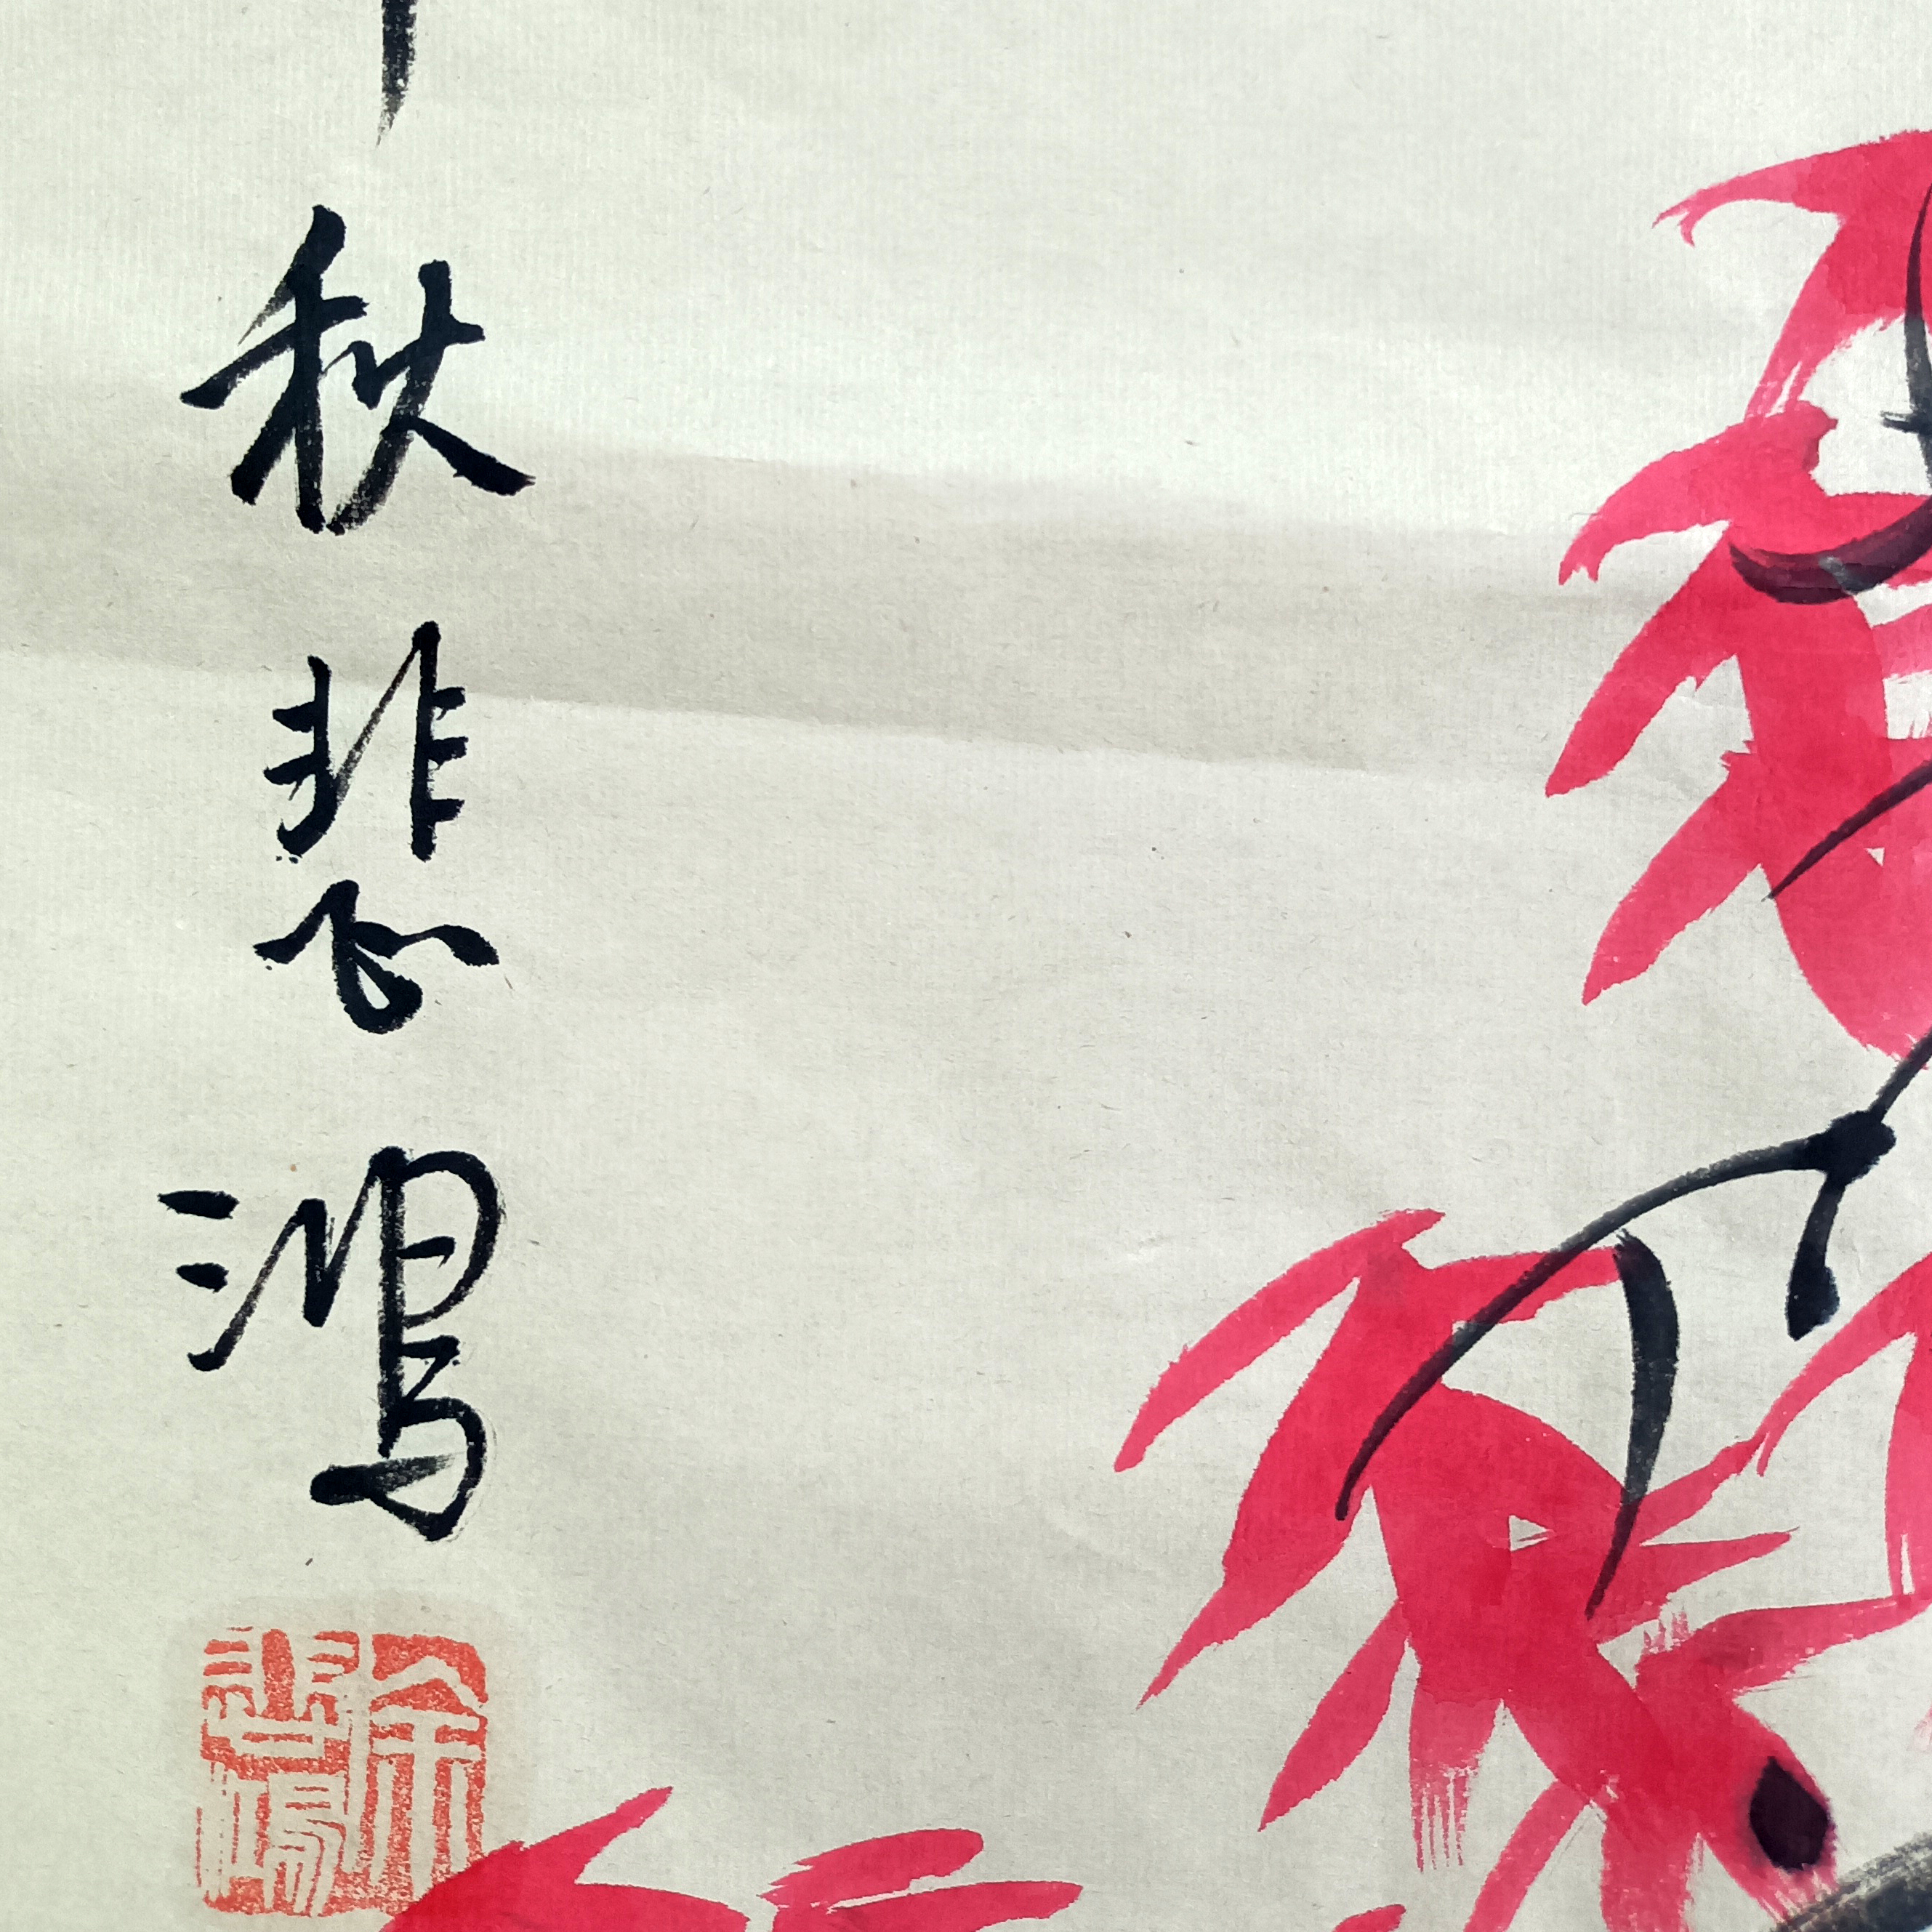 秋悲鴻
徐悲鴻